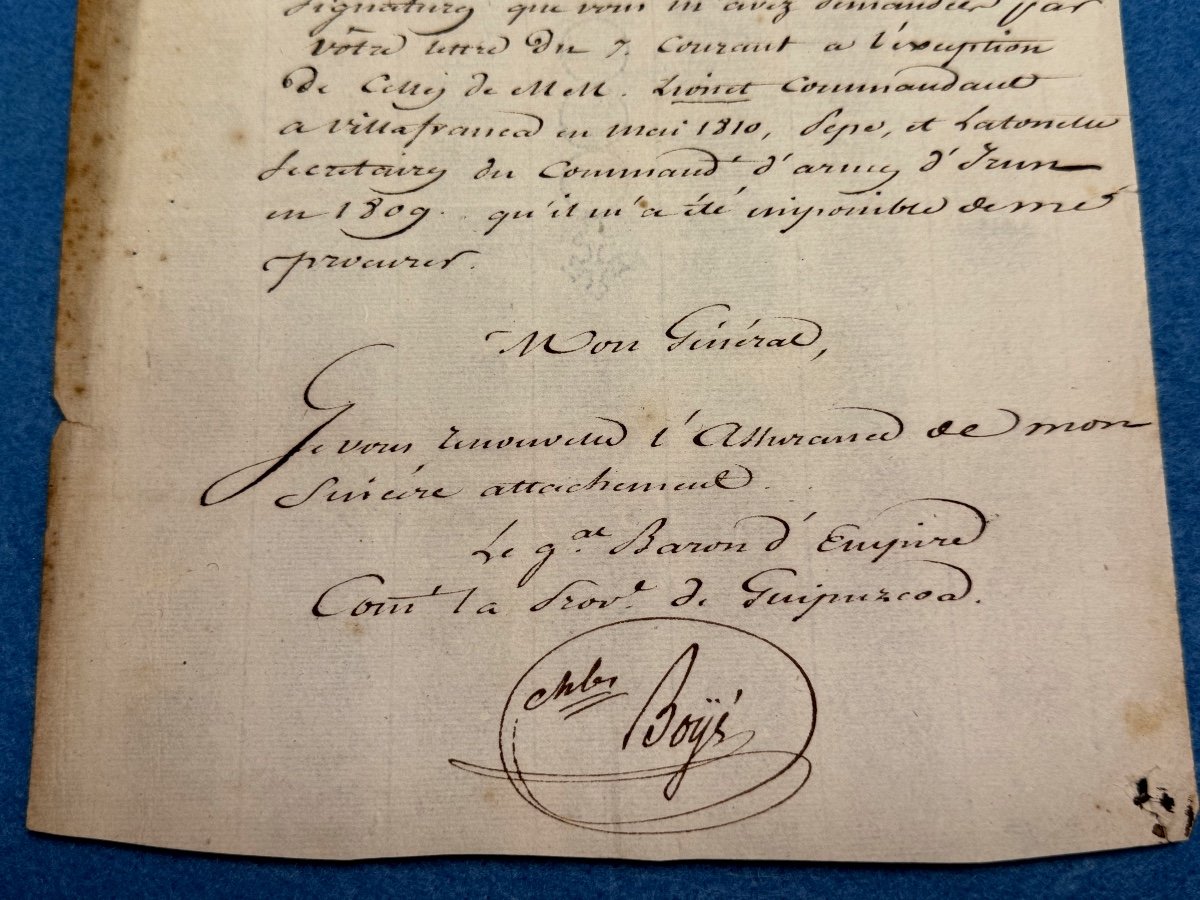 signatures que vous m'avez demandées par
vôtre lettre du 7. Courant a l'éxception
de Celles de MM. Lionet Commandant
a Villafranca en mai 1810, Pepe, et Latonelle
Secretaires du Command.t d'armes d'Irun
en 1809. qu'il m'a été impossible de me
procurer.
Mon Général,
Je vous renouvelle l'Assurance de mon
Sincère attachement.
Le g.al Baron d'Empire
Com.t la Prov.e de Guipuzcoa.
Boÿé